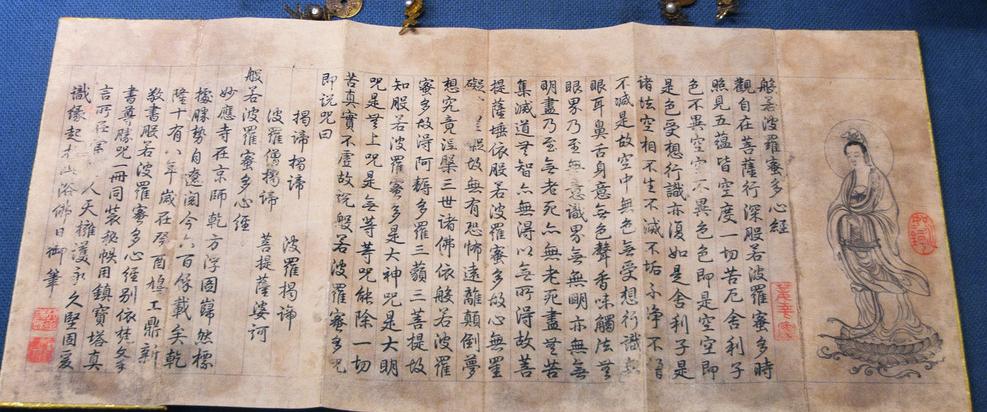 般若波羅蜜多心經
觀自在菩薩行深般若波羅蜜多時
照見五蘊皆空度一切苦厄舍利子
色不異空空不異色色即是空空即
是色受想行識亦復如是舍利子是
諸法空相不生不滅不垢不淨不增
不減是故空中無色無受想行識無
眼耳鼻舌身意無色聲香味觸法無
眼界乃至無意識界無無明亦無無
明盡乃至無老死亦無老死盡無苦
集滅道無智亦無得以無所得故菩
提薩埵依般若波羅蜜多故心無罣
礙無罣礙故無有恐怖遠離顛倒夢
想究竟涅槃三世諸佛依般若波羅
蜜多故得阿耨多羅三藐三菩提故
知般若波羅蜜多是大神咒是大明
咒是無上咒是無等等咒能除一切
苦真實不虛故說般若波羅蜜多咒
即說咒曰
揭諦揭諦 波羅揭諦
波羅僧揭諦 菩提薩婆訶
般若波羅蜜多心經
妙應寺在京師乾方浮圖巋然標
據勝勢自遼閱今六百餘載矣乾
隆十有八年歲在癸酉鳩工鼎新
敬書般若波羅蜜多心經別依梵文
書尊勝咒一冊同裝秘帙用鎮寶塔真
言所在 人天擁護永久堅固爰
識緣起 浴佛日御筆